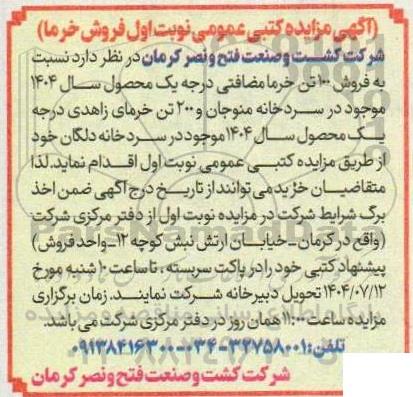 (آگهی مزایده کتبی عمومی نوبت اول فروش خرما)
شرکت کشت و صنعت فتح و نصر کرمان در نظر دارد نسبت
به فروش ۱۰۰ تن خرما مضافتی درجه یک محصول سال ۱۴۰۴
موجود در سردخانه منوجان و ۲۰۰ تن خرمای زاهدی درجه
یک محصول سال ۱۴۰۴ موجود در سردخانه دلگان خود
از طریق مزایده کتبی عمومی نوبت اول اقدام نماید. لذا
متقاضیان خرید می توانند از تاریخ درج آگهی ضمن اخذ
برگ شرایط شرکت در مزایده نوبت اول از دفتر مرکزی شرکت
(واقع در کرمان - خیابان ارتش نبش کوچه ۱۲ - واحد فروش)
پیشنهاد کتبی خود را در پاکت سربسته، تا ساعت ۱۰ شنبه مورخ
۱۴۰۴/۰۷/۱۲ تحویل دبیرخانه شرکت نمایند. زمان برگزاری
مزایده ساعت ۱۱:۰۰ همان روز در دفتر مرکزی شرکت می باشد.
تلفن: ۳۲۷۵۸۰۰۱-۰۳۴ - ۰۹۱۳۸۴۱۶۳۰۰
شرکت کشت و صنعت فتح و نصر کرمان